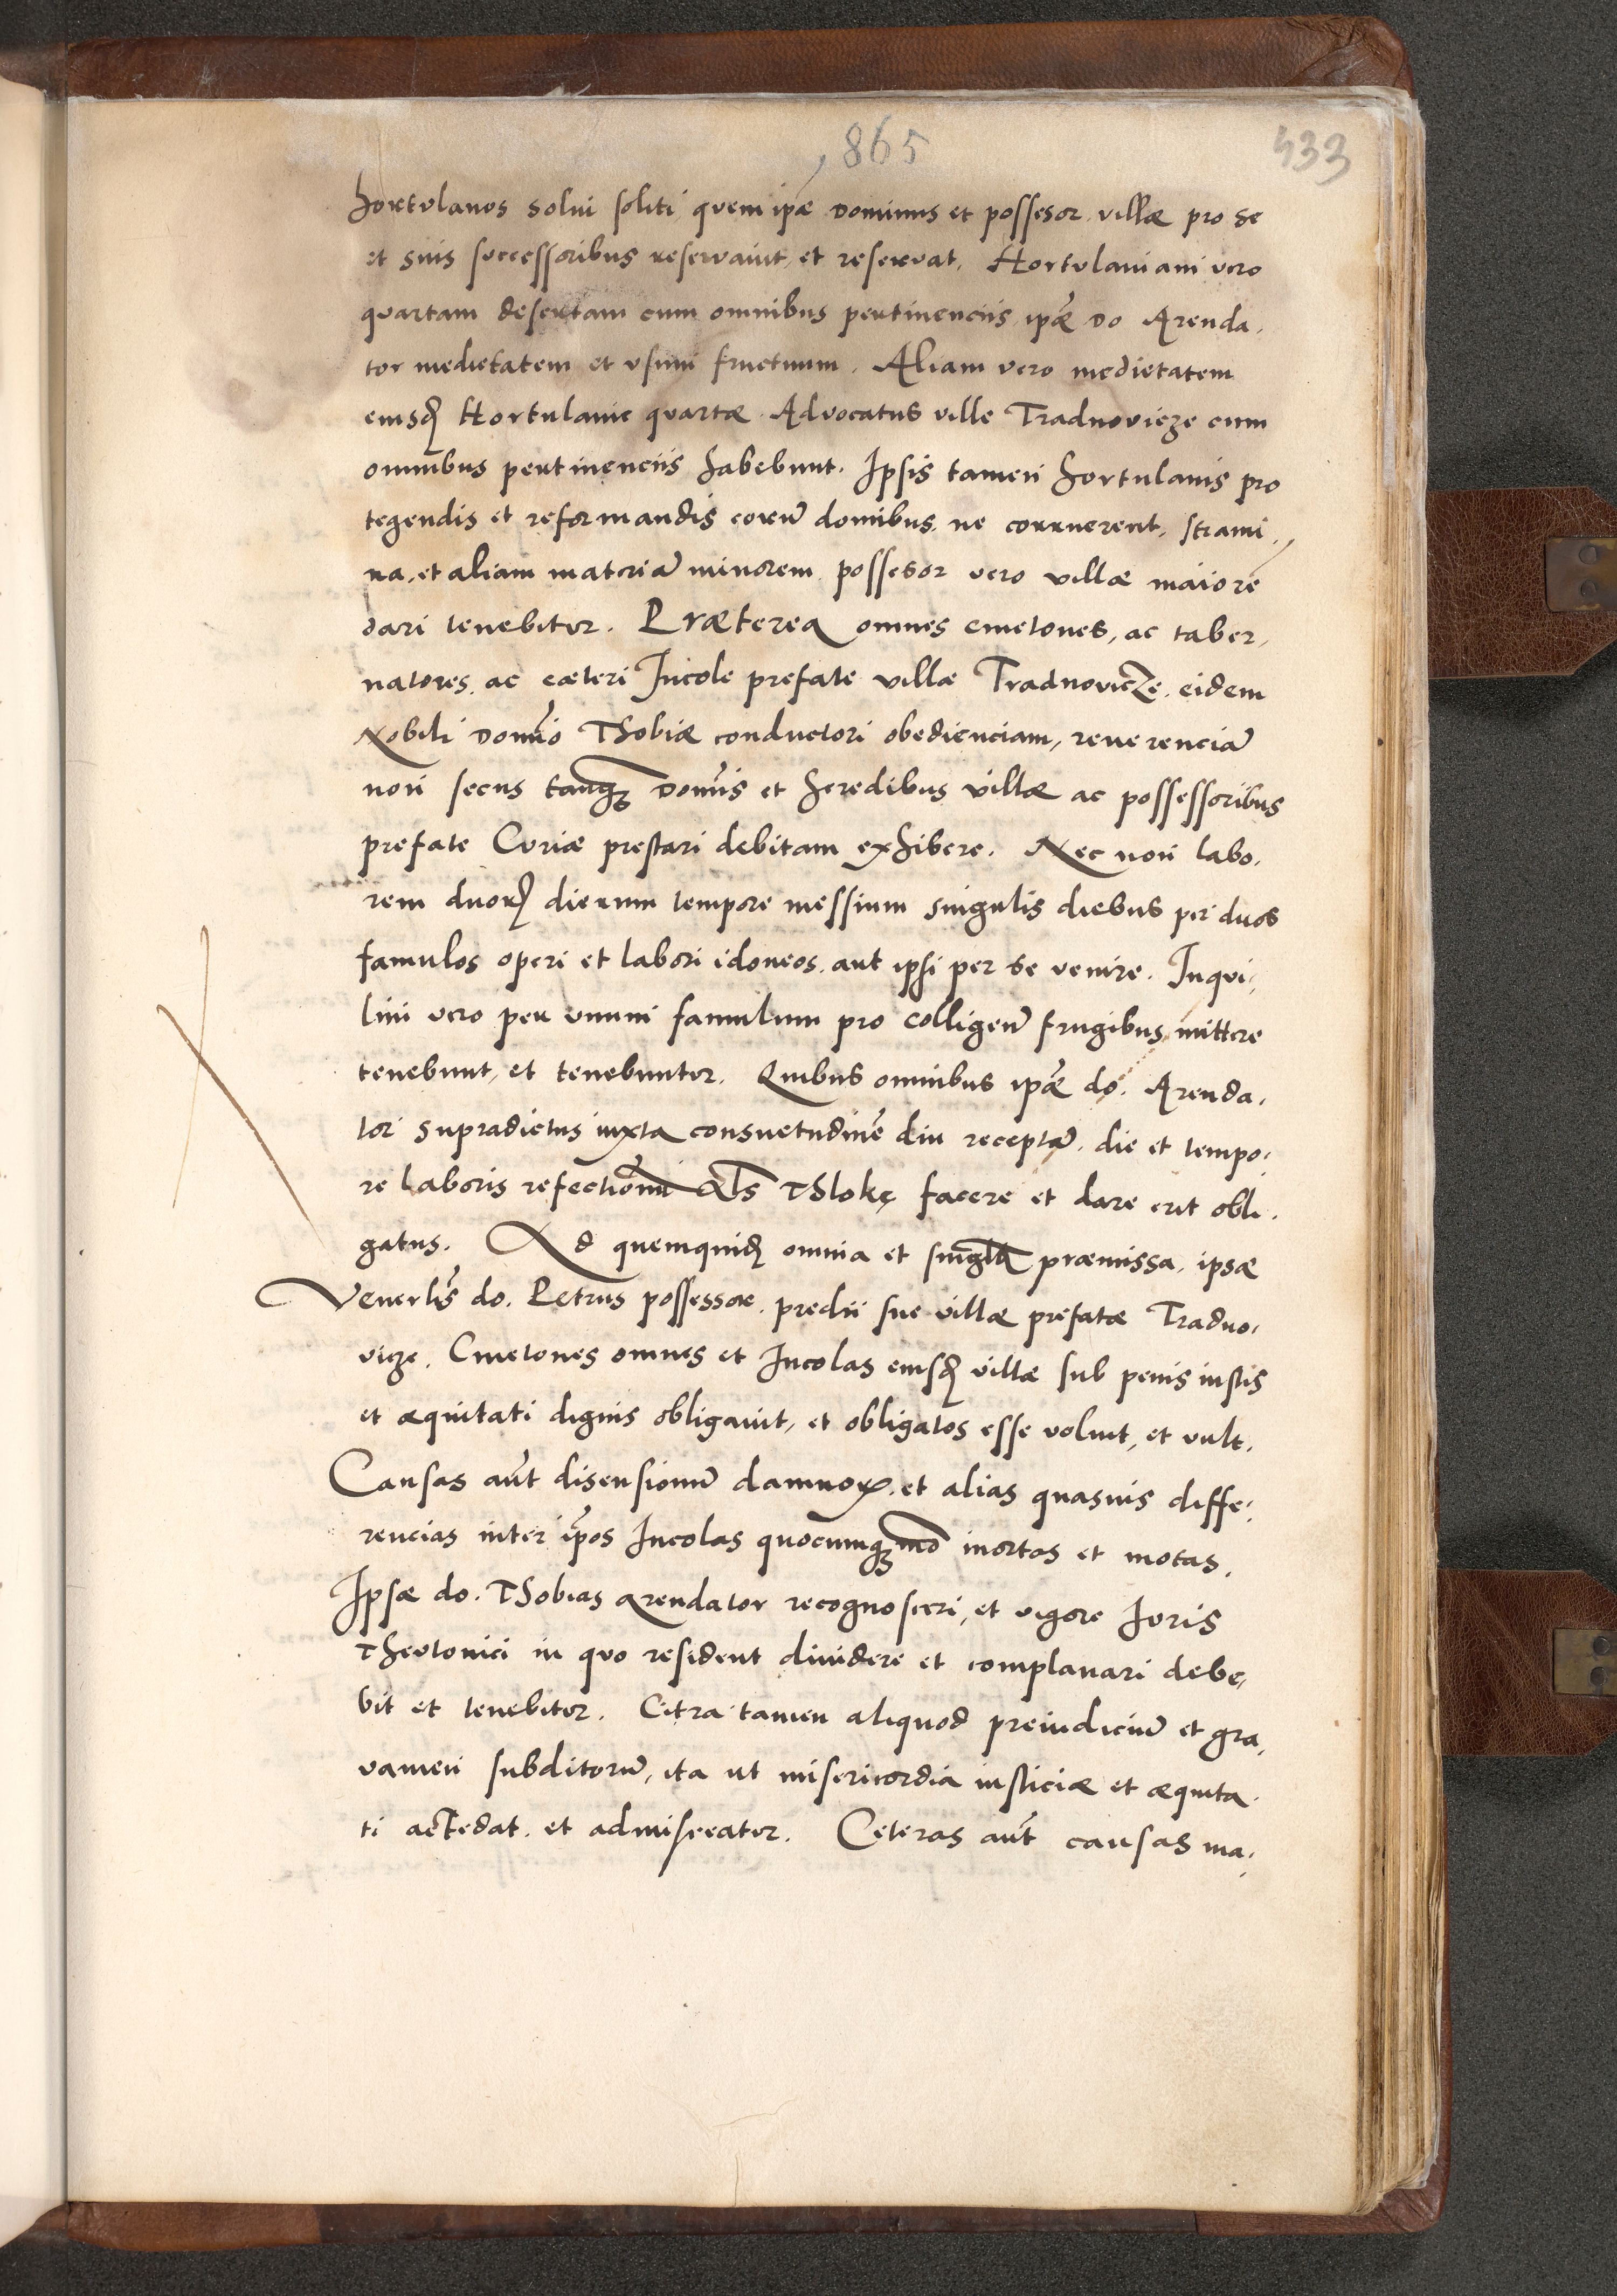 865
433
hortulanos solui soliti quem ipæ Dominus et possesor villæ pro se
et suis successoribus reservauit, et reseruat. Hortulaniam vero
quartam desertam cum omnibus pertinenciis ipæ Do Arenda,
tor medietatem et usum fructuum. Aliam vero medietatem
eiusdem Hortulanie quartæ Advocatus ville Tradnovicze cum
omnibus pertinenciis habebunt. Ipsis tamen hortulanis pro
tegendis et reformandis eorum̄ domibus, ne corruerent, strami,
na, et aliam materiā minorem possesor vero villæ maiorē
dari tenebitur. Præterea omnes cmetones, ac taber,
natores, ac cæteri Incole prefate villæ Tradnovicze eidem
Nobili Domīo Thobiæ conductori obedienciam, reuerenciā
non secus tanq̄ Domīs et heredibus villæ ac possessoribus
prefate Curiæ prestari debitam exhibere. Nec non labo,
rem duorꝝ dierum tempore messium singulis diebus per duos
famulos operi et labori idoneos, aut ipsi per se venire. Inqui,
lini vero per unum famulum pro colligen̄ frugibus mittere
tenebunt, et tenebuntur. Quibus omnibus ipæ do. Arenda,
tor supradictus iuxta consuetudinē diu receptā, die et tempo,
re laboris refectionem als Thlokę facere et dare erit obli,
gatus. Ad quemquidem omnia et singula præmissa, ipsæ
Venerlis do. Petrus possessor prędii sue villæ prefatæ Tradno,
vicze. Cmetones omnes et Incolas eiusdem villæ sub penis iustis
et æquitati dignis obligauit, et obligatos esse voluit, et vult.
Causas aūt disensionū damnorꝝ et alias quasuis diffe,
rencias inter ip̄os Incolas quocumq̄ mo inortas et motas,
Ipsæ do. Thobias arendator recognosceri, et vigore Iuris
Theutonici in quo resident diuidere et complanari debe,
bit et tenebitur. Citra tamen aliquod preiudiciū et gra,
vamen subditorū, ita ut misericordia iusticiæ et æquita,
ti accedat et admisceatur. Ceteras aūt causas ma,